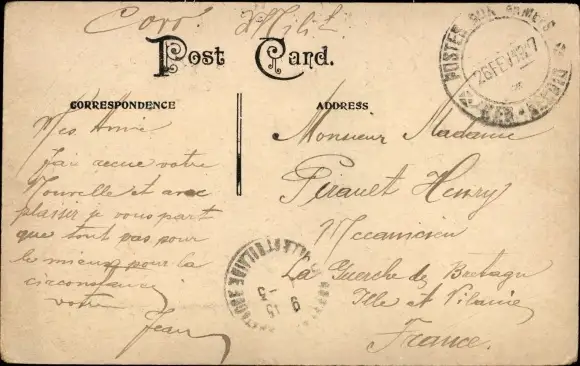 Corr. Milit.
Post Card.
CORRESPONDENCE
ADDRESS
Mes Amie
J'ai accue votre
Nouvelle et avec
plaisir je vous part
que tout pas pour
le mieux pour la
circonstance
votre
Jean
Monsieur Madame
Perauet Henry
Mecanicien
La Guerche de Bretagn
Ille et Vilaine
France.
POSTES AUX ARMEES
26 FEV